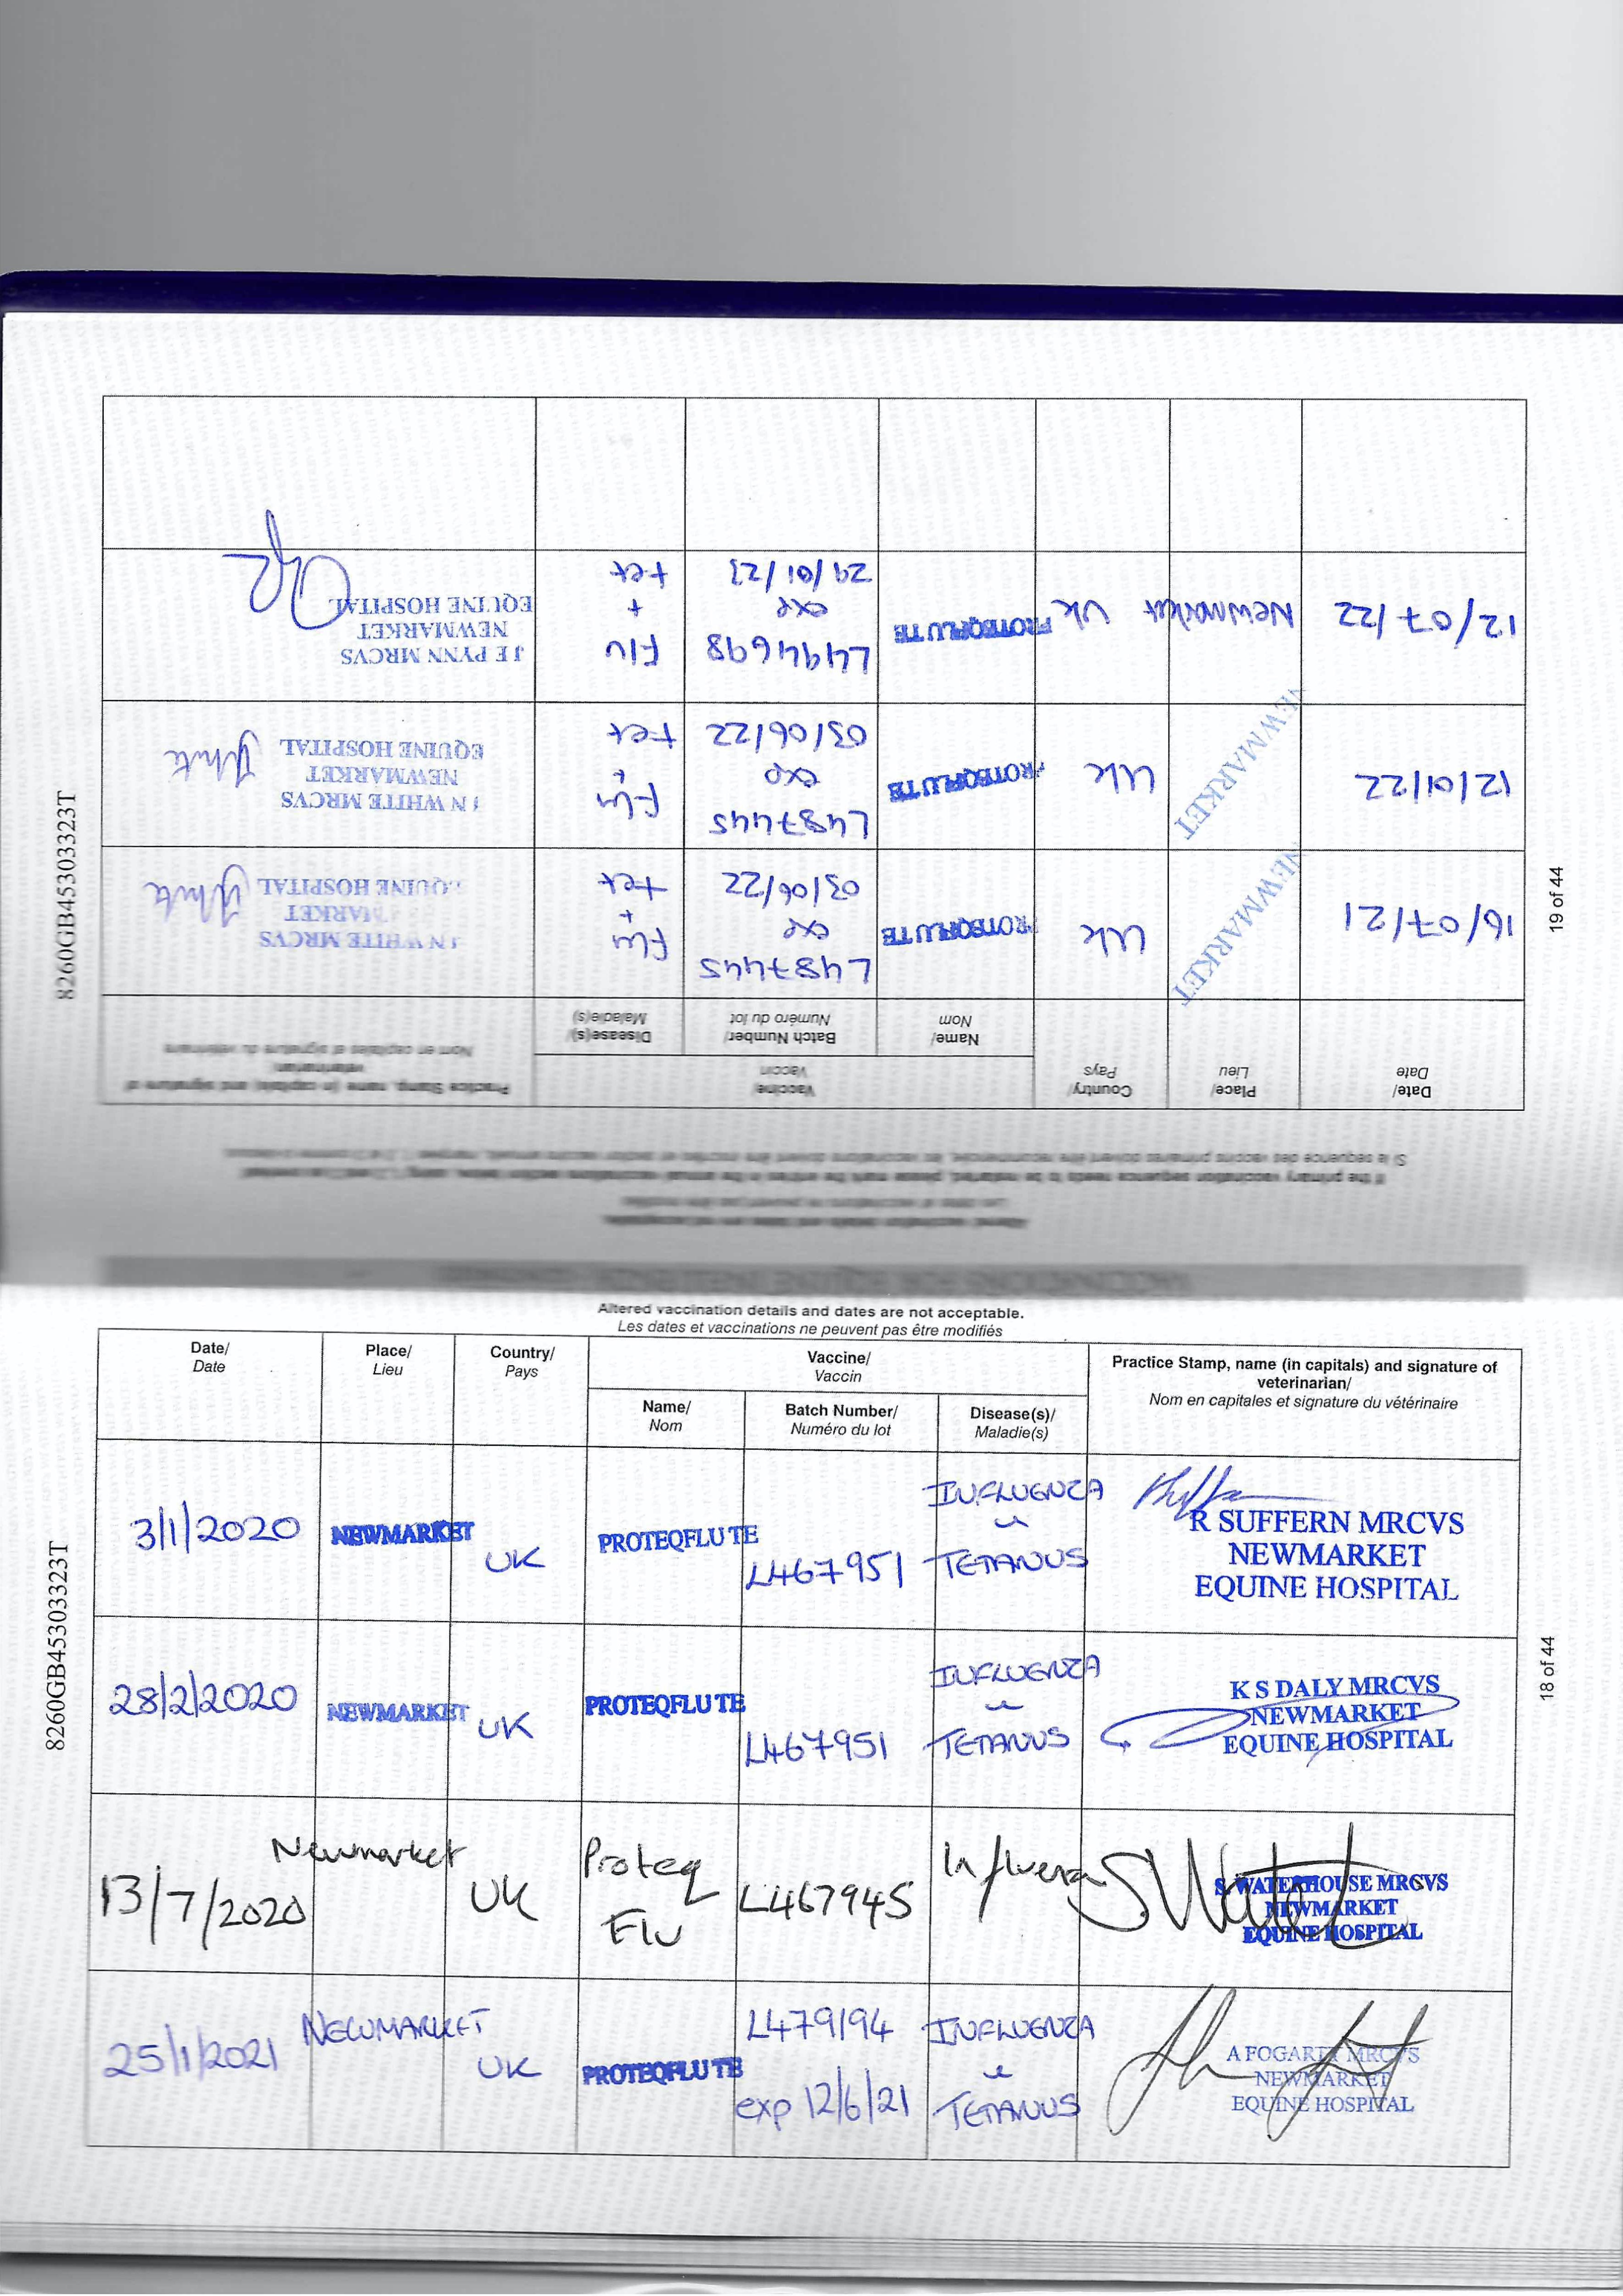 Altered vaccination details and dates are not acceptable.
Les dates et vaccinations ne peuvent pas être modifiés
Date/
Date
Place/
Lieu
Country/
Pays
Vaccine/
Vaccin
Name/
Nom
Batch Number/
Numéro du lot
Disease(s)/
Maladie(s)
Practice Stamp, name (in capitals) and signature of
veterinarian/
Nom en capitales et signature du vétérinaire
3/1/2020
NEWMARKET
UK
PROTEQFLU TE
L467951
INFLUENZA
TETANUS
R SUFFERN MRCVS
NEWMARKET
EQUINE HOSPITAL
28/2/2020
NEWMARKET
UK
PROTEQFLU TE
L467951
INFLUENZA
TETANUS
K S DALY MRCVS
NEWMARKET
EQUINE HOSPITAL
13/7/2020
Newmarket
UK
Proteq
Flu
L467945
Influenza
S WATERHOUSE MRCVS
NEWMARKET
EQUINE HOSPITAL
25/1/2021
NEWMARKET
UK
PROTEQFLU TE
L479194
exp 12/6/21
INFLUENZA
TETANUS
A FOGARTY MRCVS
NEWMARKET
EQUINE HOSPITAL
8260GB45303323T
18 of 44
Altered vaccination details and dates are not acceptable.
Les dates et vaccinations ne peuvent pas être modifiés
If the primary vaccination sequence needs to be restarted, please mark the entries in the annual vaccinations section below,
Date/
Date
Place/
Lieu
Country/
Pays
Vaccine/
Vaccin
Name/
Nom
Batch Number/
Numéro du lot
Disease(s)/
Maladie(s)
Practice Stamp, name (in capitals) and signature of
veterinarian/
Nom en capitales et signature du vétérinaire
16/07/21
NEWMARKET
UK
PROTEQFLU TE
L487445
exp
03/06/22
Flu
+
tet
J N WHITE MRCVS
MARKET
EQUINE HOSPITAL
White
12/01/22
NEWMARKET
UK
PROTEQFLU TE
L487445
exp
03/06/22
Flu
+
tet
J N WHITE MRCVS
NEWMARKET
EQUINE HOSPITAL
White
12/07/22
Newmarket
UK
PROTEQFLU TE
L494698
exp
29/01/23
Flu
+
tet
J E PYNN MRCVS
NEWMARKET
EQUINE HOSPITAL
8260GB45303323T
19 of 44